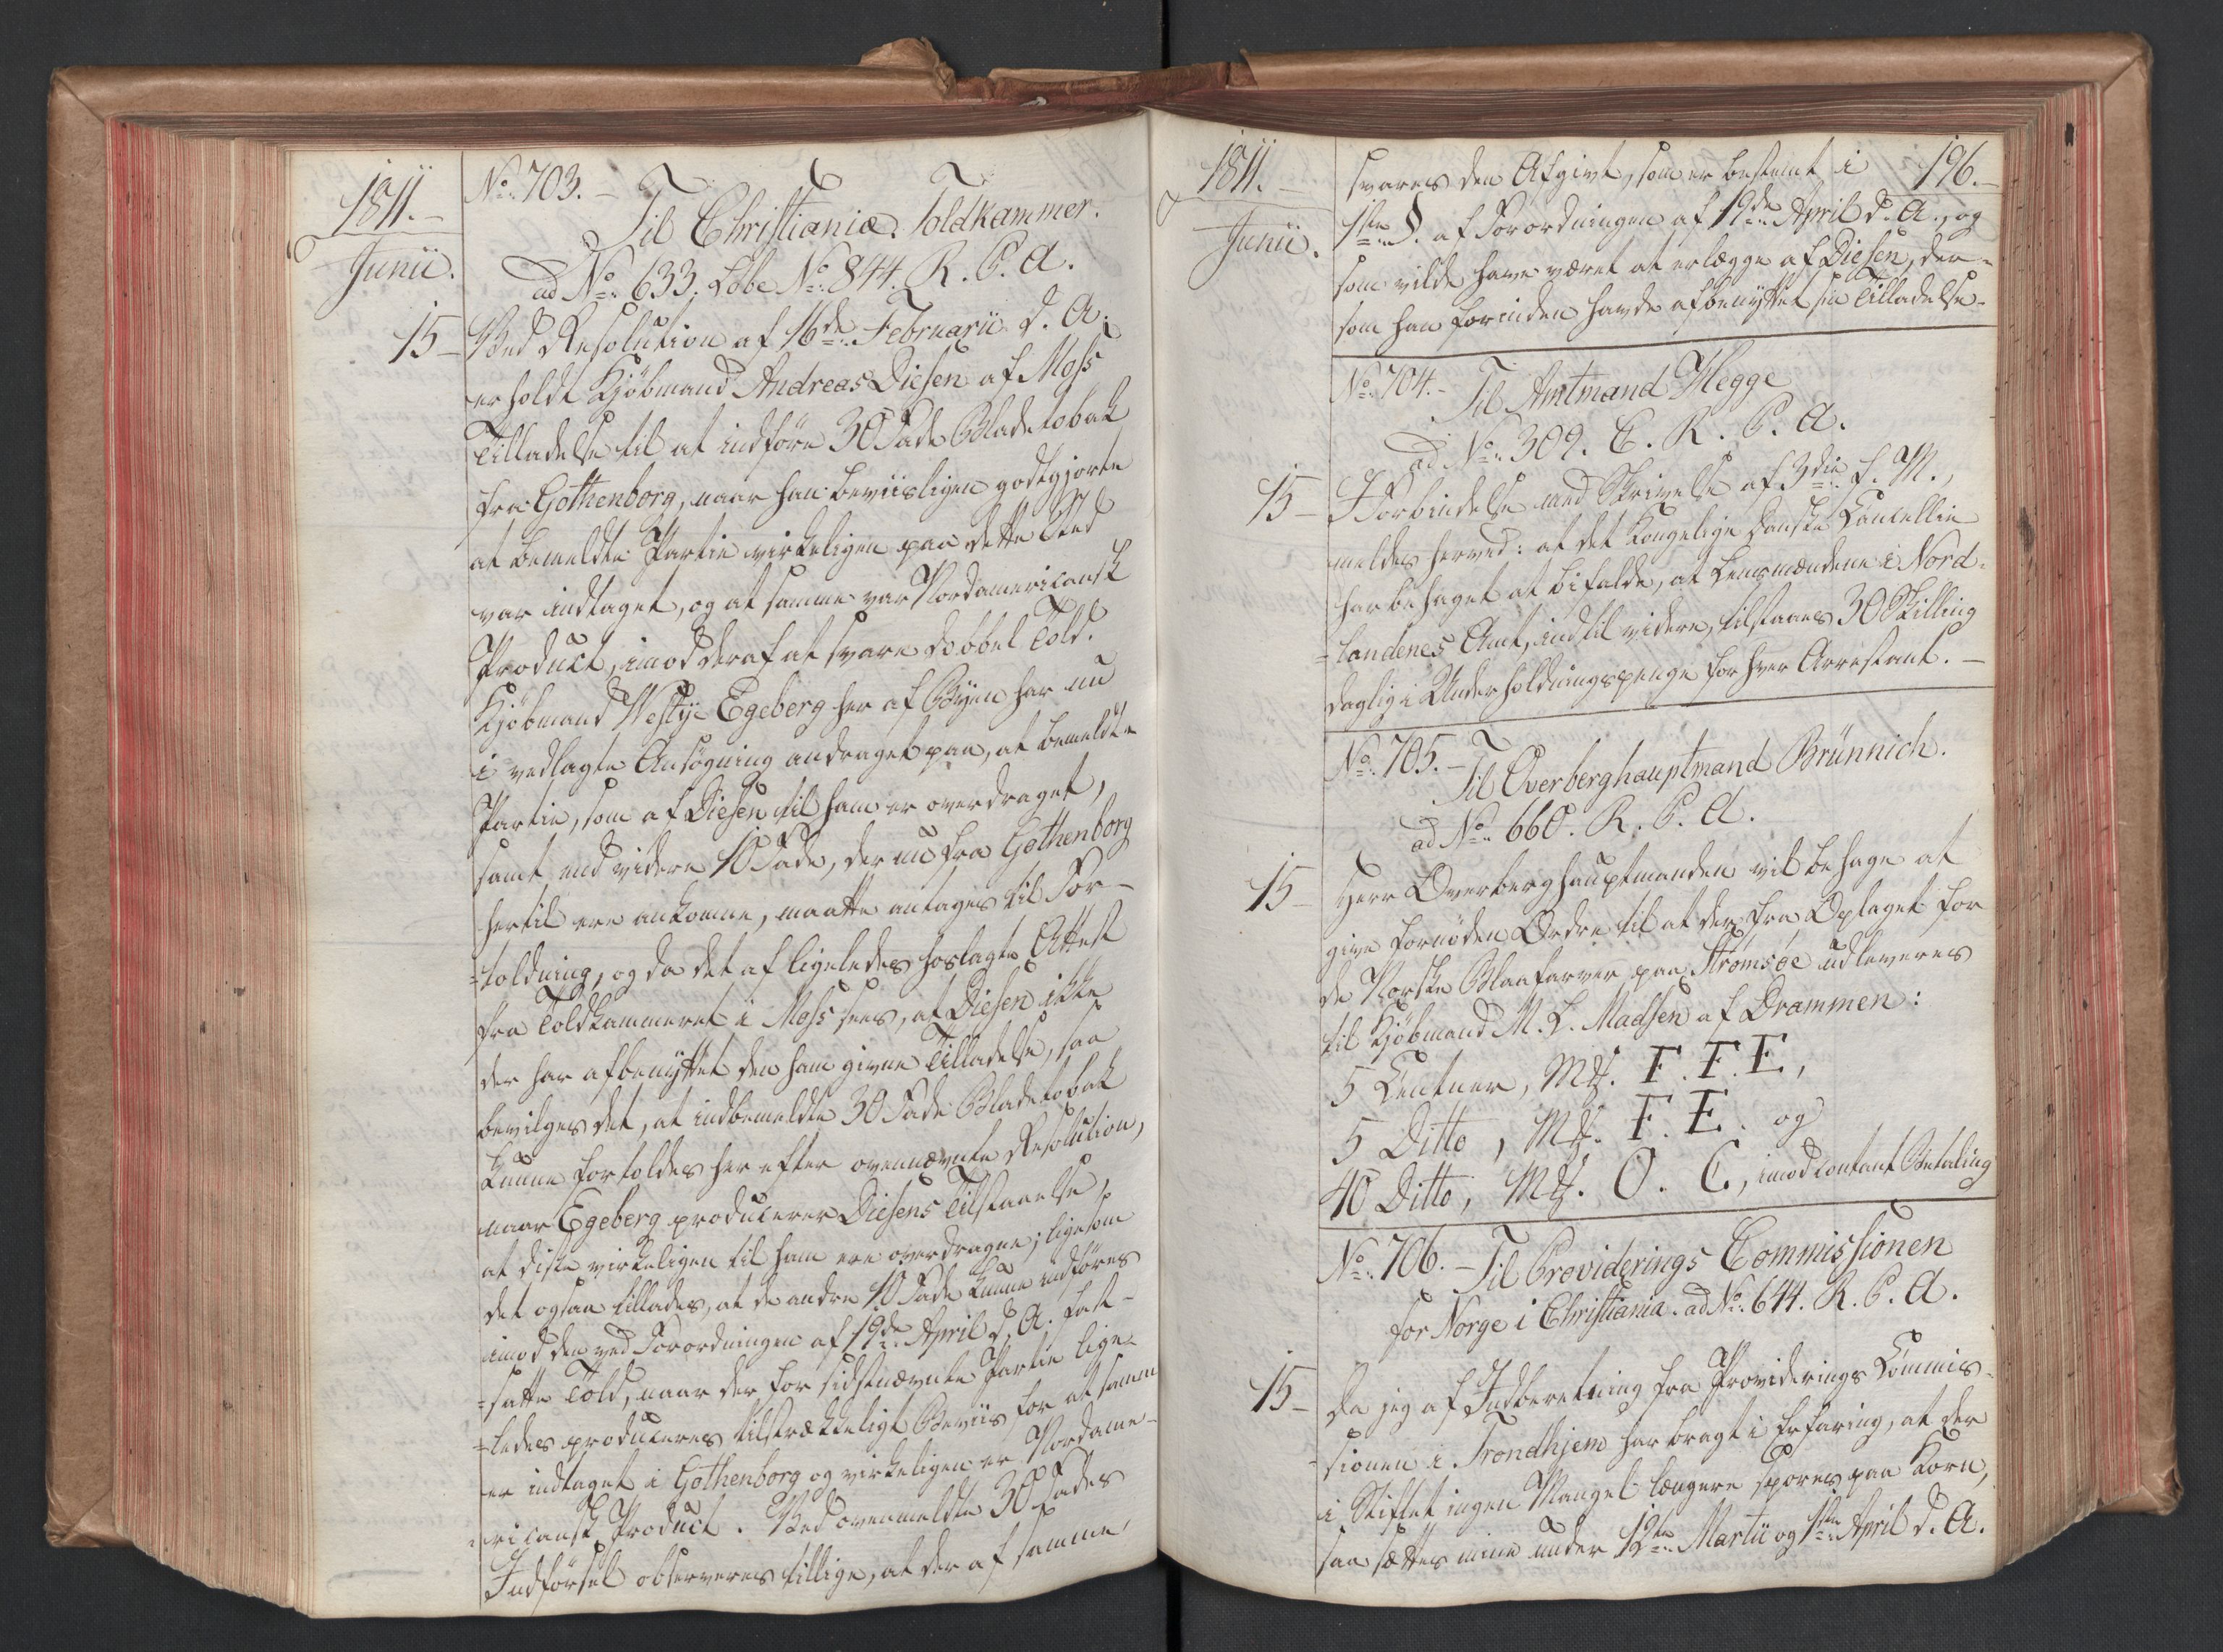 1811.
Junii.
No. 703. –
Til Christiania Toldkammer.
ad No. 633. Løbe No. 844. R. C. A.
15 – Ved Resolution af 16de Februarii d. A.
erholdt Kjøbmand Andreas Diesen af Moss
Tilladelse til at indføre 30 Fade Bladetobak
fra Gothenborg, naar han beviisligen godtgjorte
at bemeldte Partie virkeligen paa dette Sted
var indtaget, og at samme var Nordamericansk
Product, imod deraf at svare dobbel Told.
Kjøbmand Westye Egeberg her af Byen har nu
i vedlagte Ansøgning andraget paa, at bemeldte
Partie, som af Diesen til ham er overdraget,
samt end videre 10 Fade, der nu fra Gothenborg
hertil ere ankomne, maatte antages til For-
=toldning, og da det af ligeledes hoslagte Attest
fra Toldkammeret i Moss sees, at Diesen ikke
der har afbenyttet den ham givne Tilladelse, saa
bevilges det, at indbemeldte 30 Fade Bladetobak
kunne fortoldes her efter ovennævnte Resolution,
naar Egeberg producerer Diesens Tilstaaelse,
at disse virkeligen til ham ere overdragne; ligesom
det ogsaa tillades, at de andre 10 Fade kunne indføres
imod den ved Forordningen af 19de April d. A. fast-
=satte Told, naar der for sidstnævnte Partie lige-
=ledes produceres tilstrækkeligt Beviis for at samme
er indtaget i Gothenborg og virkeligen er Nordame-
=ricansk Product. Ved ovenmeldte 30 Fades
Indførsel observeres tillige, at der af samme
1811. –
Junii.
196. –
svares den Afgivt, som er bestemt i
1ste §. af Forordningen af 19de April d. A., og
som vilde have været at erlægge af Diesen, der-
som han forinden havde afbenyttet sin Tilladelse. –
No. 704. – Til Amtmand Hegge
ad No. 309. C. R. C. A.
15 – I Forbindelse med Skrivelse af 3die f. M.,
meldes herved: at det Kongelige Danske Cancellie
har behaget at bifalde, at Lensmændene i Nord-
=landenes Amt, indtil videre, tilstaaes 30 Skilling
daglig i Underholdningspenge for hver Arrestant. –
No. 705. –
Til Overberghauptmand Brünnich.
ad No. 660. R. C. A.
15 – Herr Overberghauptmanden vil behage at
give fornøden Ordre til at der fra Oplaget for
de Norske Blaafarver paa Strømsøe udleveres
til Kjøbmand M. L. Madsen af Drammen:
5 Centner, Mk. F. F. E,
5 Ditto, Mk. F. E. og
40 Ditto, Mk. O. C, imod contant Betaling
No. 706. – Til Providerings Commissionen
for Norge i Christiania. ad No. 644. R. C. A.
15 – Da jeg af Indberetning fra Provideringscommis-
=sionen i Trondhjem har bragt i Erfaring, at der
i Stiftet ingen Mangel længere spores paa Korn,
saa sættes mine under 12te Martii og 1ste April d. A.